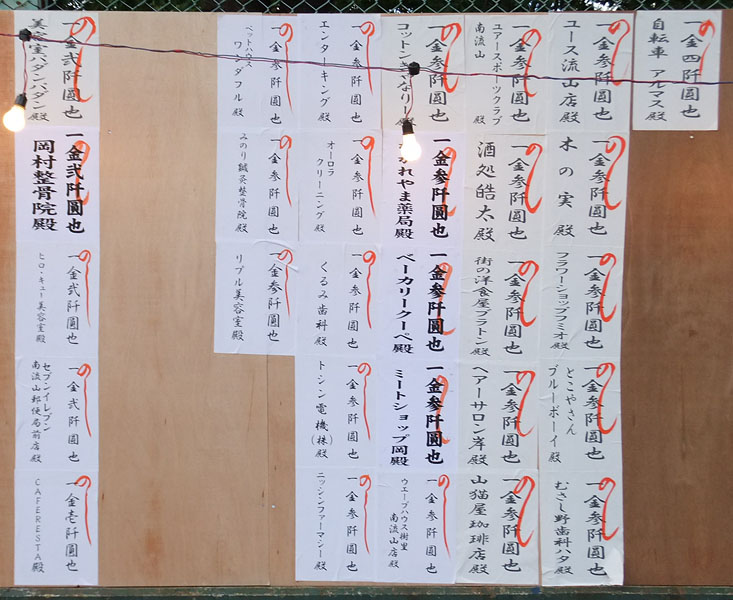 のし
一金四阡圓也
自転車 アルマス殿
のし
一金参阡圓也
ユース流山店殿
のし
一金参阡圓也
木の実殿
のし
一金参阡圓也
フラワーショップフミオ殿
のし
一金参阡圓也
とこやさん
ブルーボーイ殿
のし
一金参阡圓也
むさし野歯科ハタ殿
のし
一金参阡圓也
ユアースポーツクラブ
南流山殿
のし
一金参阡圓也
酒処皓太殿
のし
一金参阡圓也
街の洋食屋プラトン殿
のし
一金参阡圓也
ヘアーサロン岸殿
のし
一金参阡圓也
山猫屋珈琲店殿
のし
一金参阡圓也
コットンきっなりー殿
のし
一金参阡圓也
ながれやま薬局殿
のし
一金参阡圓也
ベーカリークーペ殿
のし
一金参阡圓也
ミートショップ岡殿
のし
一金参阡圓也
ウエーブハウス樹里
南流山店殿
のし
一金参阡圓也
エンターキング殿
のし
一金参阡圓也
オーロラ
クリーニング殿
のし
一金参阡圓也
くるみ歯科殿
のし
一金参阡圓也
トシン電機(株)殿
のし
一金参阡圓也
ニッシンファーマシー殿
のし
一金参阡圓也
ペットハウス
ワンダフル殿
のし
一金参阡圓也
みのり鍼灸整骨院殿
のし
一金参阡圓也
リブル美容室殿
のし
一金弐阡圓也
美容室パタンパタン殿
のし
一金弐阡圓也
岡村整骨院殿
のし
一金弐阡圓也
ヒロ・キュー美容室殿
のし
一金弐阡圓也
セブンイレブン
南流山郵便局前店殿
のし
一金壱阡圓也
CAFERESTA殿